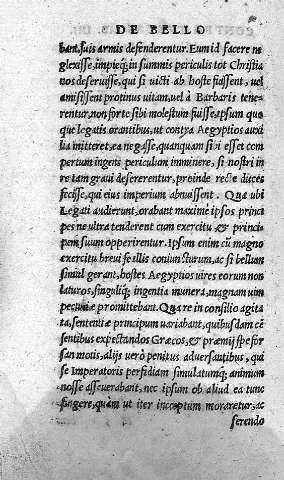 DE BELLO
bant, suis armis defenderentur. Eum id facere ne
glexisse, impieq́; in summis periculis tot Christia
nos deseruisse, qui si victi ab hoste fuissent, vel
amisissent protinus uitam, vel à Barbaris tene-
rentur, non forte sibi molestum fuisse, Ipsum quo
que legatis orantibus, ut contra Aegyptios auxi
lia mitteret, ea negasse, quanquam si esset com
pertum ingens periculum imminere, si nostri in
re tam graui desererentur, proinde recte duces
fecisse, qui eius imperium abnuissent. Qua ubi
Legati audierunt, orabant maxime ipsos princi
pes ne ultra tenderent cum exercitu & princi-
pem suum opperirentur. Ipsum enim cũ magno
exercitu brevi se illis coniuncturum, ac si bellum
simul gerant, hostes Aegyptios vires eorum non
laturos, singulisq́; ingentia munera, magnam uim
pecuniæ promittebant. Quare in consilio agita
ta, sententiæ principum variabant, quibusdam cẽ
sentibus expectandos Græcos, & præmij spe for
san motis, alijs verò penitus adversantibus, qui
se Imperatoris perfidiam simulatumq́; animum
nosse asseverabant, nec ipsum ob aliud ea tunc
fingere, quam ut iter inceptum moraretur, ac
ferendo